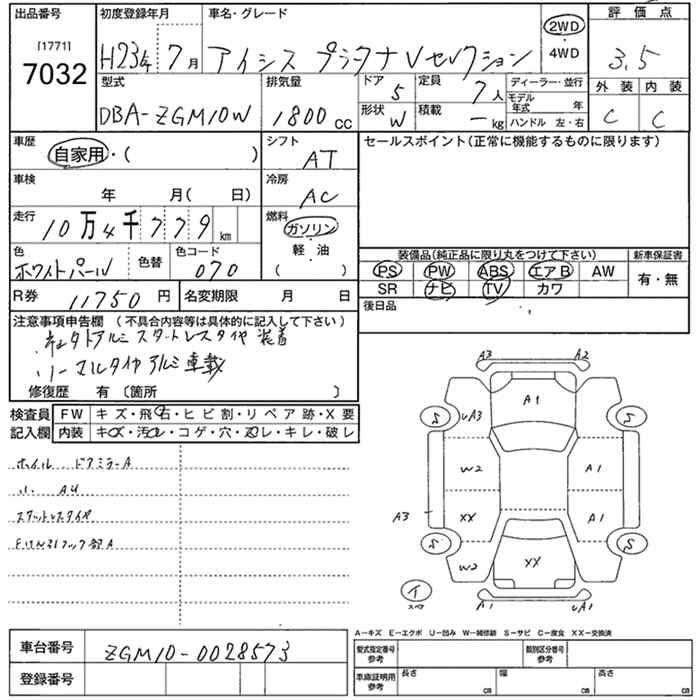 出品番号 初度登録年月 車名・グレード 評価点
[1771]
7032 H23年 7月 アイシス プラタナ Vセレクション 2WD・4WD 3.5
型式 排気量 ドア 5 定員 7人 ディーラー・並行 外装 内装
DBA-ZGM10W 1800cc 形状 W 積載 ―kg モデル年式 年 C C
ハンドル 左・右
車歴 シフト セールスポイント(正常に機能するものに限ります)
自家用・( ) AT
車検 冷房
年 月( 日) AC
走行 燃料
10万4千779km ガソリン
色 色替 色コード 軽・油
ホワイトパール 070 ( )
装備品(純正品に限り丸をつけて下さい) 新車保証書
PS PW ABS エアB AW 有・無
SR ナビ TV カワ
R券 11750円 名変期限 月 日 後日品
注意事項申告欄 (不具合内容等は具体的に記入して下さい)
社外アルミ スタットレスタイヤ 装着
ノーマルタイヤ アルミ 車載
修復歴 有 〔箇所 〕
検査員 FW キズ・飛石・ヒビ割・リペア跡・X要
記入欄 内装 キズ・汚れ・コゲ・穴・スレ・キレ・破レ
ホイル ドアミラーA
小 AU
スタットレスタイヤ
A3 A2
A1
S UA3 S
W2 A1
A3 XX A1
S S
W2 XX
イ
スペア
A1 UA1
A―キズ E―エクボ U―凹み W―補修跡 S―サビ C―腐食 XX―交換済
車台番号 ZGM10-0028573
登録番号
型式指定番号 参考 類別区分番号 参考
車庫証明用 参考 長さ cm 幅 cm 高さ cm